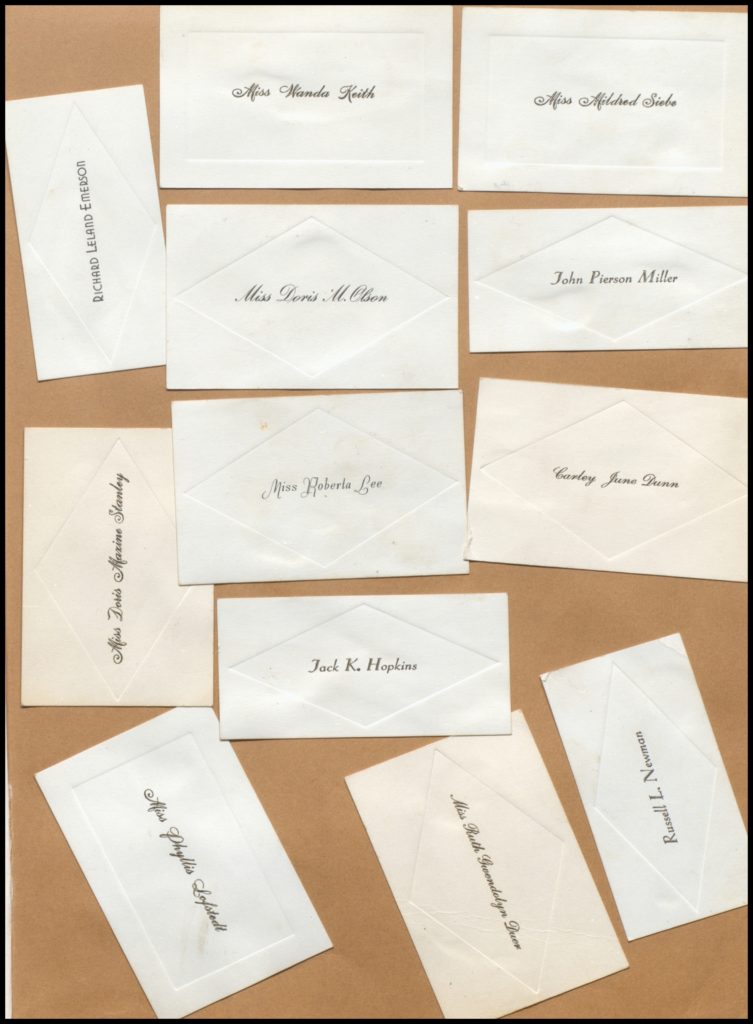 Miss Wanda Keith
Miss Mildred Siebe
RICHARD LELAND EMERSON
Miss Doris M. Olson
John Pierson Miller
Miss Doris Maxine Stanley
Miss Roberta Lee
Carley June Dunn
Jack K. Hopkins
Russell L. Newman
Miss Phyllis Lofstedt
Miss Ruth Gwendolyn Duer